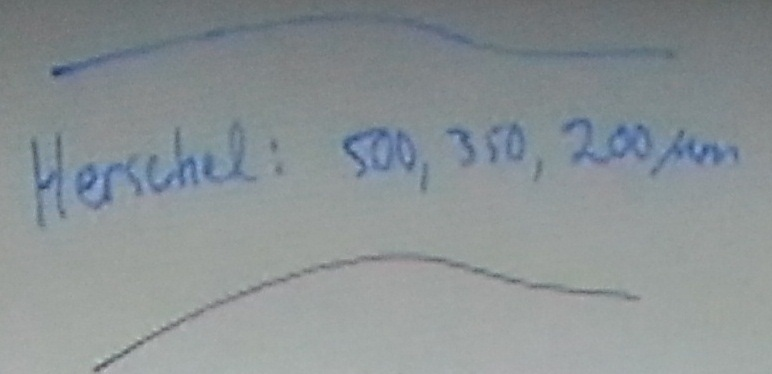 Herschel: 500, 350, 200 μm